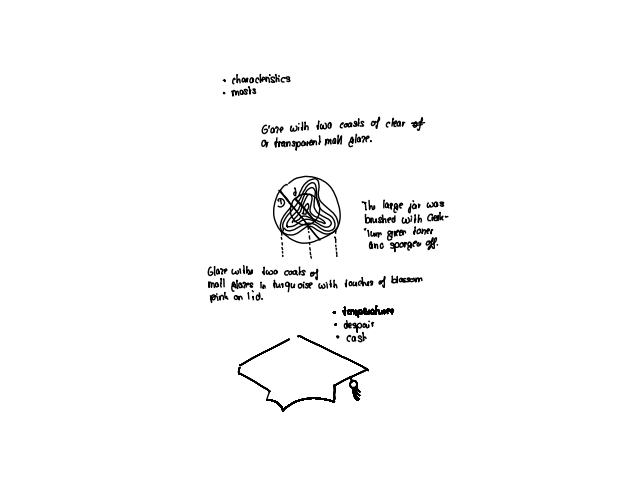 • characteristics
• masts
Glaze with two coasts of clear of
or transparent matt glaze.
D d
The large jar was
brushed with
green toner
and sponged off.
Glaze withe two coats of
matt glazes in turquoise with touches of blossom
pink on lid.
• temperatures
• despair
• cash